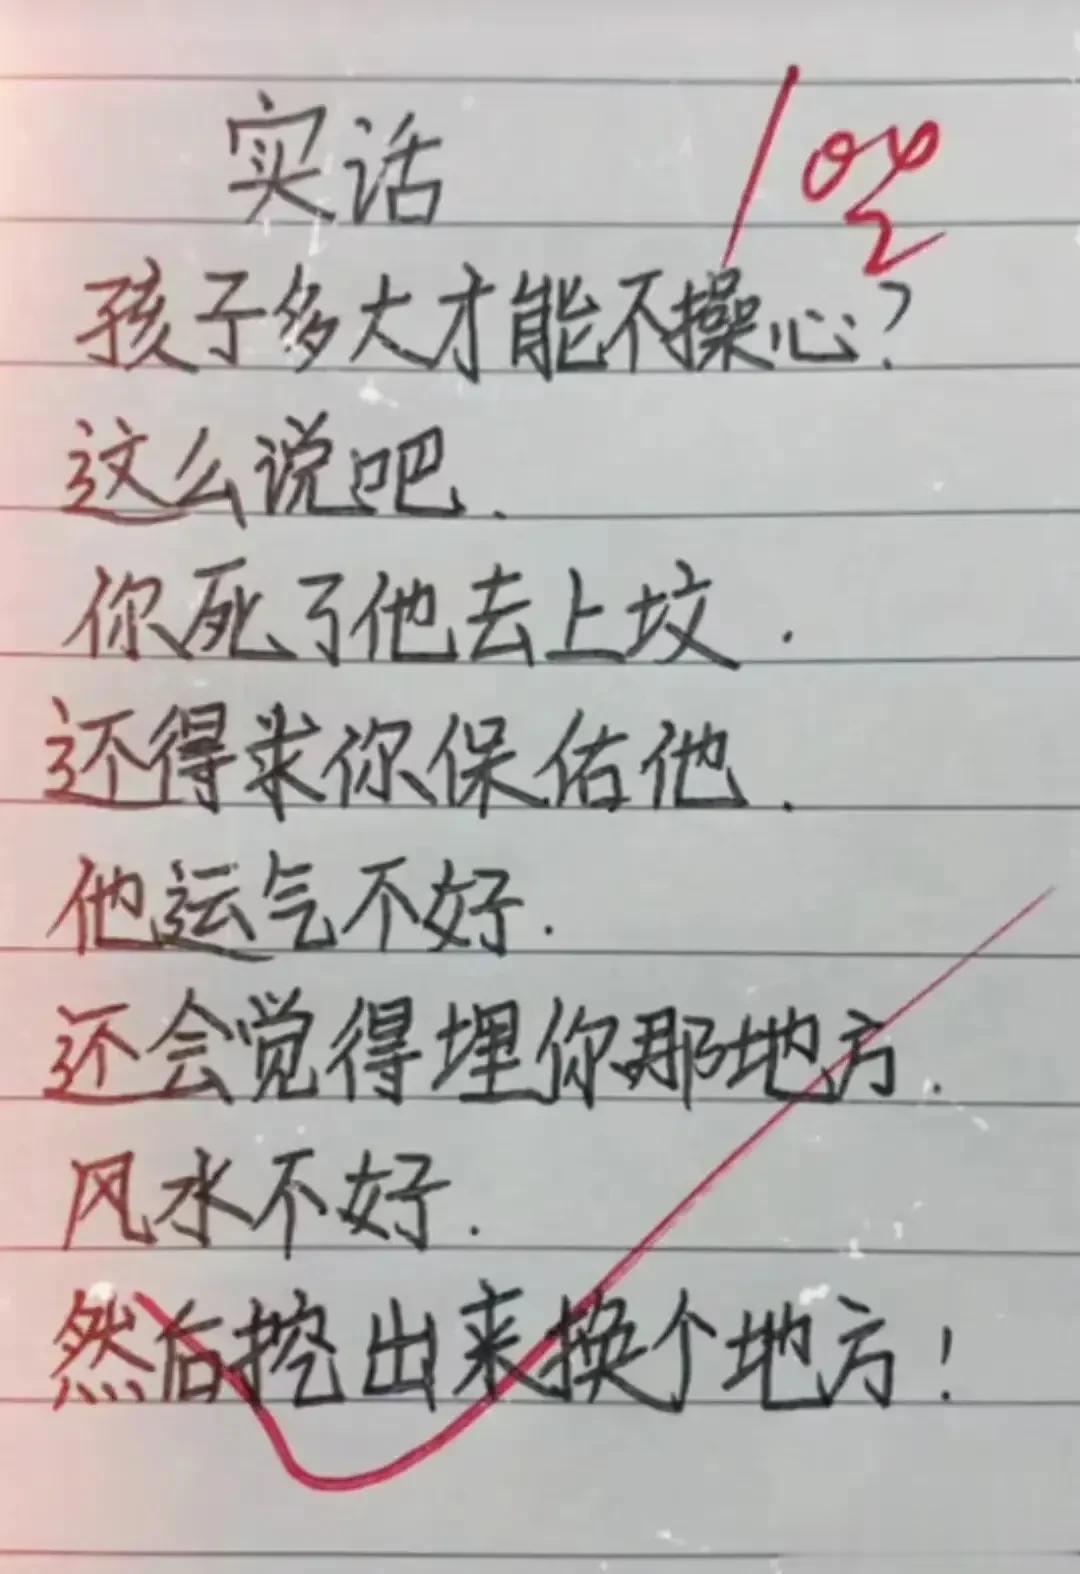 实话
100
孩子多大才能不操心？
这么说吧.
你死了他去上坟.
还得求你保佑他.
他运气不好.
还会觉得埋你那地方.
风水不好.
然后挖出来换个地方！